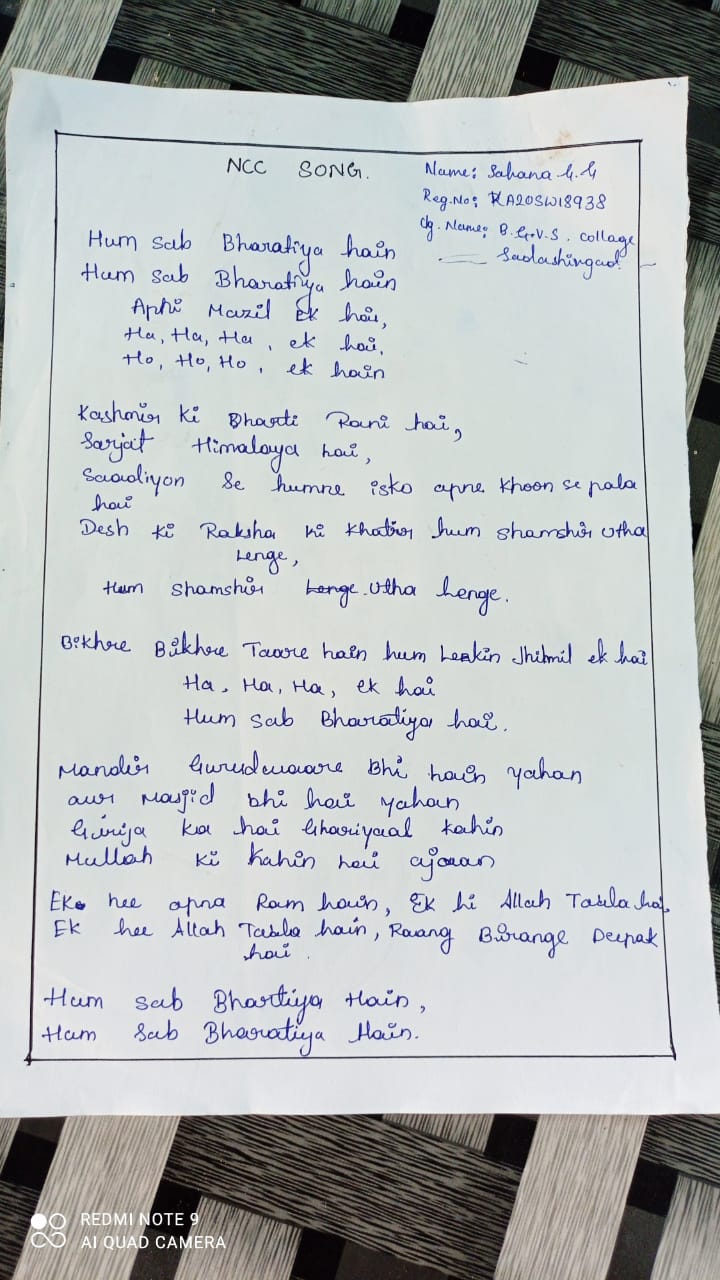 NCC SONG.
Name: Sahana G.G
Reg.No: KA20SW18938
Clg. Name: B.G.V.S. collage
Sadashingad.
Hum sab Bharatiya hain
Hum sab Bharatiya hain
Aphi Mazil Ek hai,
Ha, Ha, Ha, ek hai,
Ho, Ho, Ho, ek hain
Kashmir ki Bharti Rani hai,
Sarjat Himalaya hai,
Saadiyon se humne isko apne khoon se pala
hai
Desh ki Raksha ki khatir hum shamshir utha
Lenge,
Hum shamshir Lenge utha Lenge.
Bikhre Bikhre Taare hain hum Leakin Jhilmil ek hai
Ha, Ha, Ha, ek hai
Hum sab Bharatiya hai.
Mandir Gurudwaare Bhi hain yahan
aur Masjid bhi hai yahan
Girija ka hai Ghariyaal kahin
Mullah ki kahin hai ajaan
Ek hee apna Ram hain, Ek hi Allah Taala hai,
Ek hee Allah Taala hain, Raang Birange Deepak
hai.
Hum sab Bhartiya Hain,
Ham Sab Bharatiya Hain.
REDMI NOTE 9
AI QUAD CAMERA